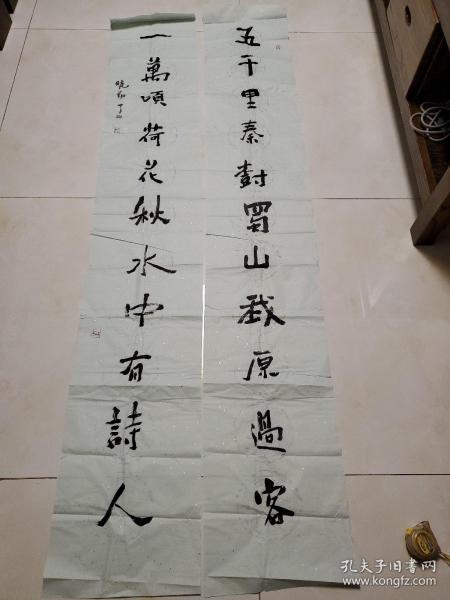 五千里秦對蜀山我原過客
一萬頃荷花秋水中有詩人
孔夫子旧书网
www.kongfz.com